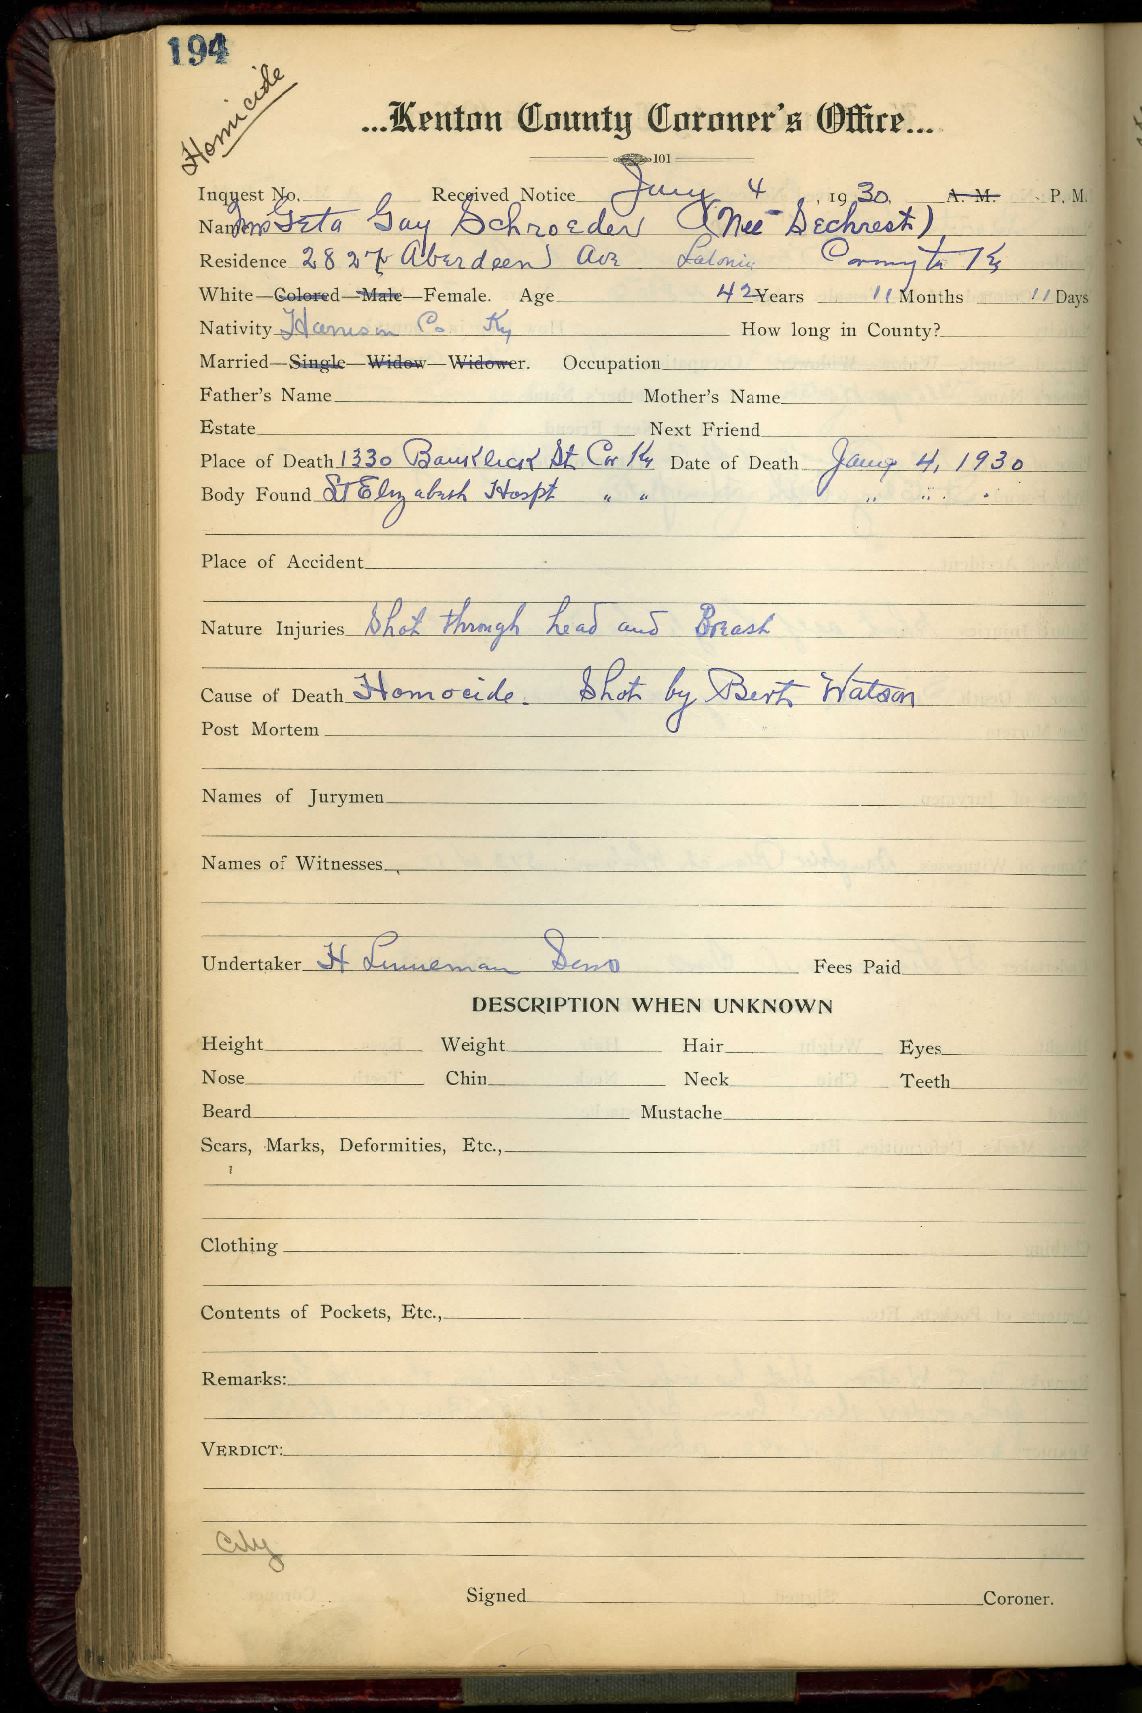 194
Homicide
...Kenton County Coroner's Office...
101
Inquest No. Received Notice Jany 4, 1930, A. M. P. M.
Name Mrs Geta Gay Schroeder (Nee Sechrest)
Residence 2827 Aberdeen Ave Latonia Covington Ky
White—Colored—Male—Female. Age 42 Years 11 Months 11 Days
Nativity Harrison Co. Ky How long in County?
Married—Single—Widow—Widower. Occupation
Father's Name Mother's Name
Estate Next Friend
Place of Death 1330 Banklick St. Cov Ky Date of Death Jany 4, 1930
Body Found St Elizabeth Hospt " " " " "
Place of Accident
Nature Injuries Shot through head and Breast
Cause of Death Homocide. Shot by Bert Watson
Post Mortem
Names of Jurymen
Names of Witnesses
Undertaker H Linneman Sons Fees Paid
DESCRIPTION WHEN UNKNOWN
Height Weight Hair Eyes
Nose Chin Neck Teeth
Beard Mustache
Scars, Marks, Deformities, Etc.,
Clothing
Contents of Pockets, Etc.,
Remarks:
VERDICT:
City
Signed Coroner.